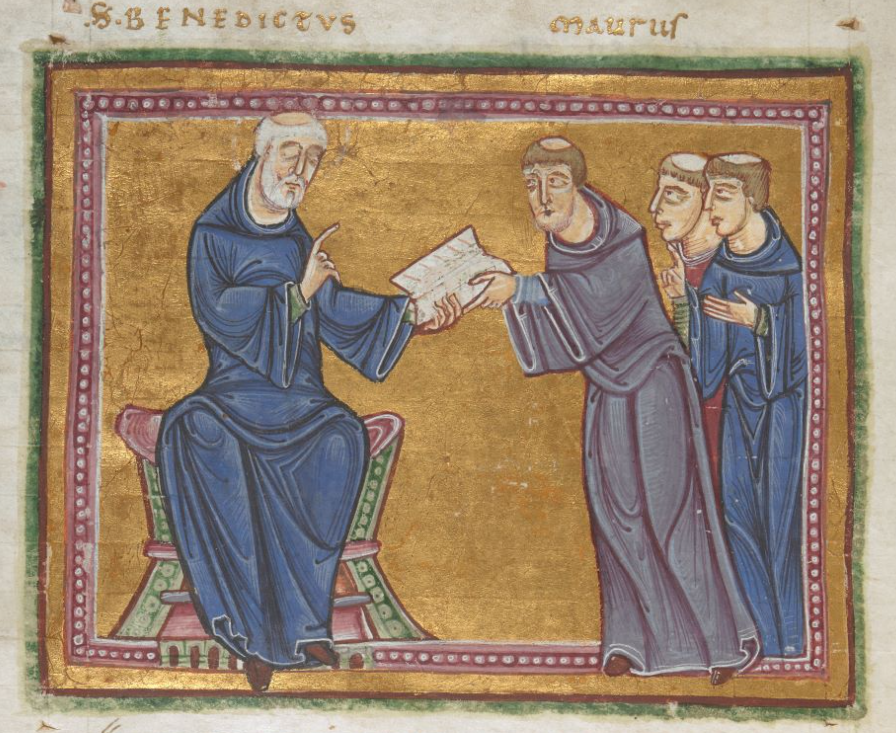 .S. BENEDICTVS MAURUS